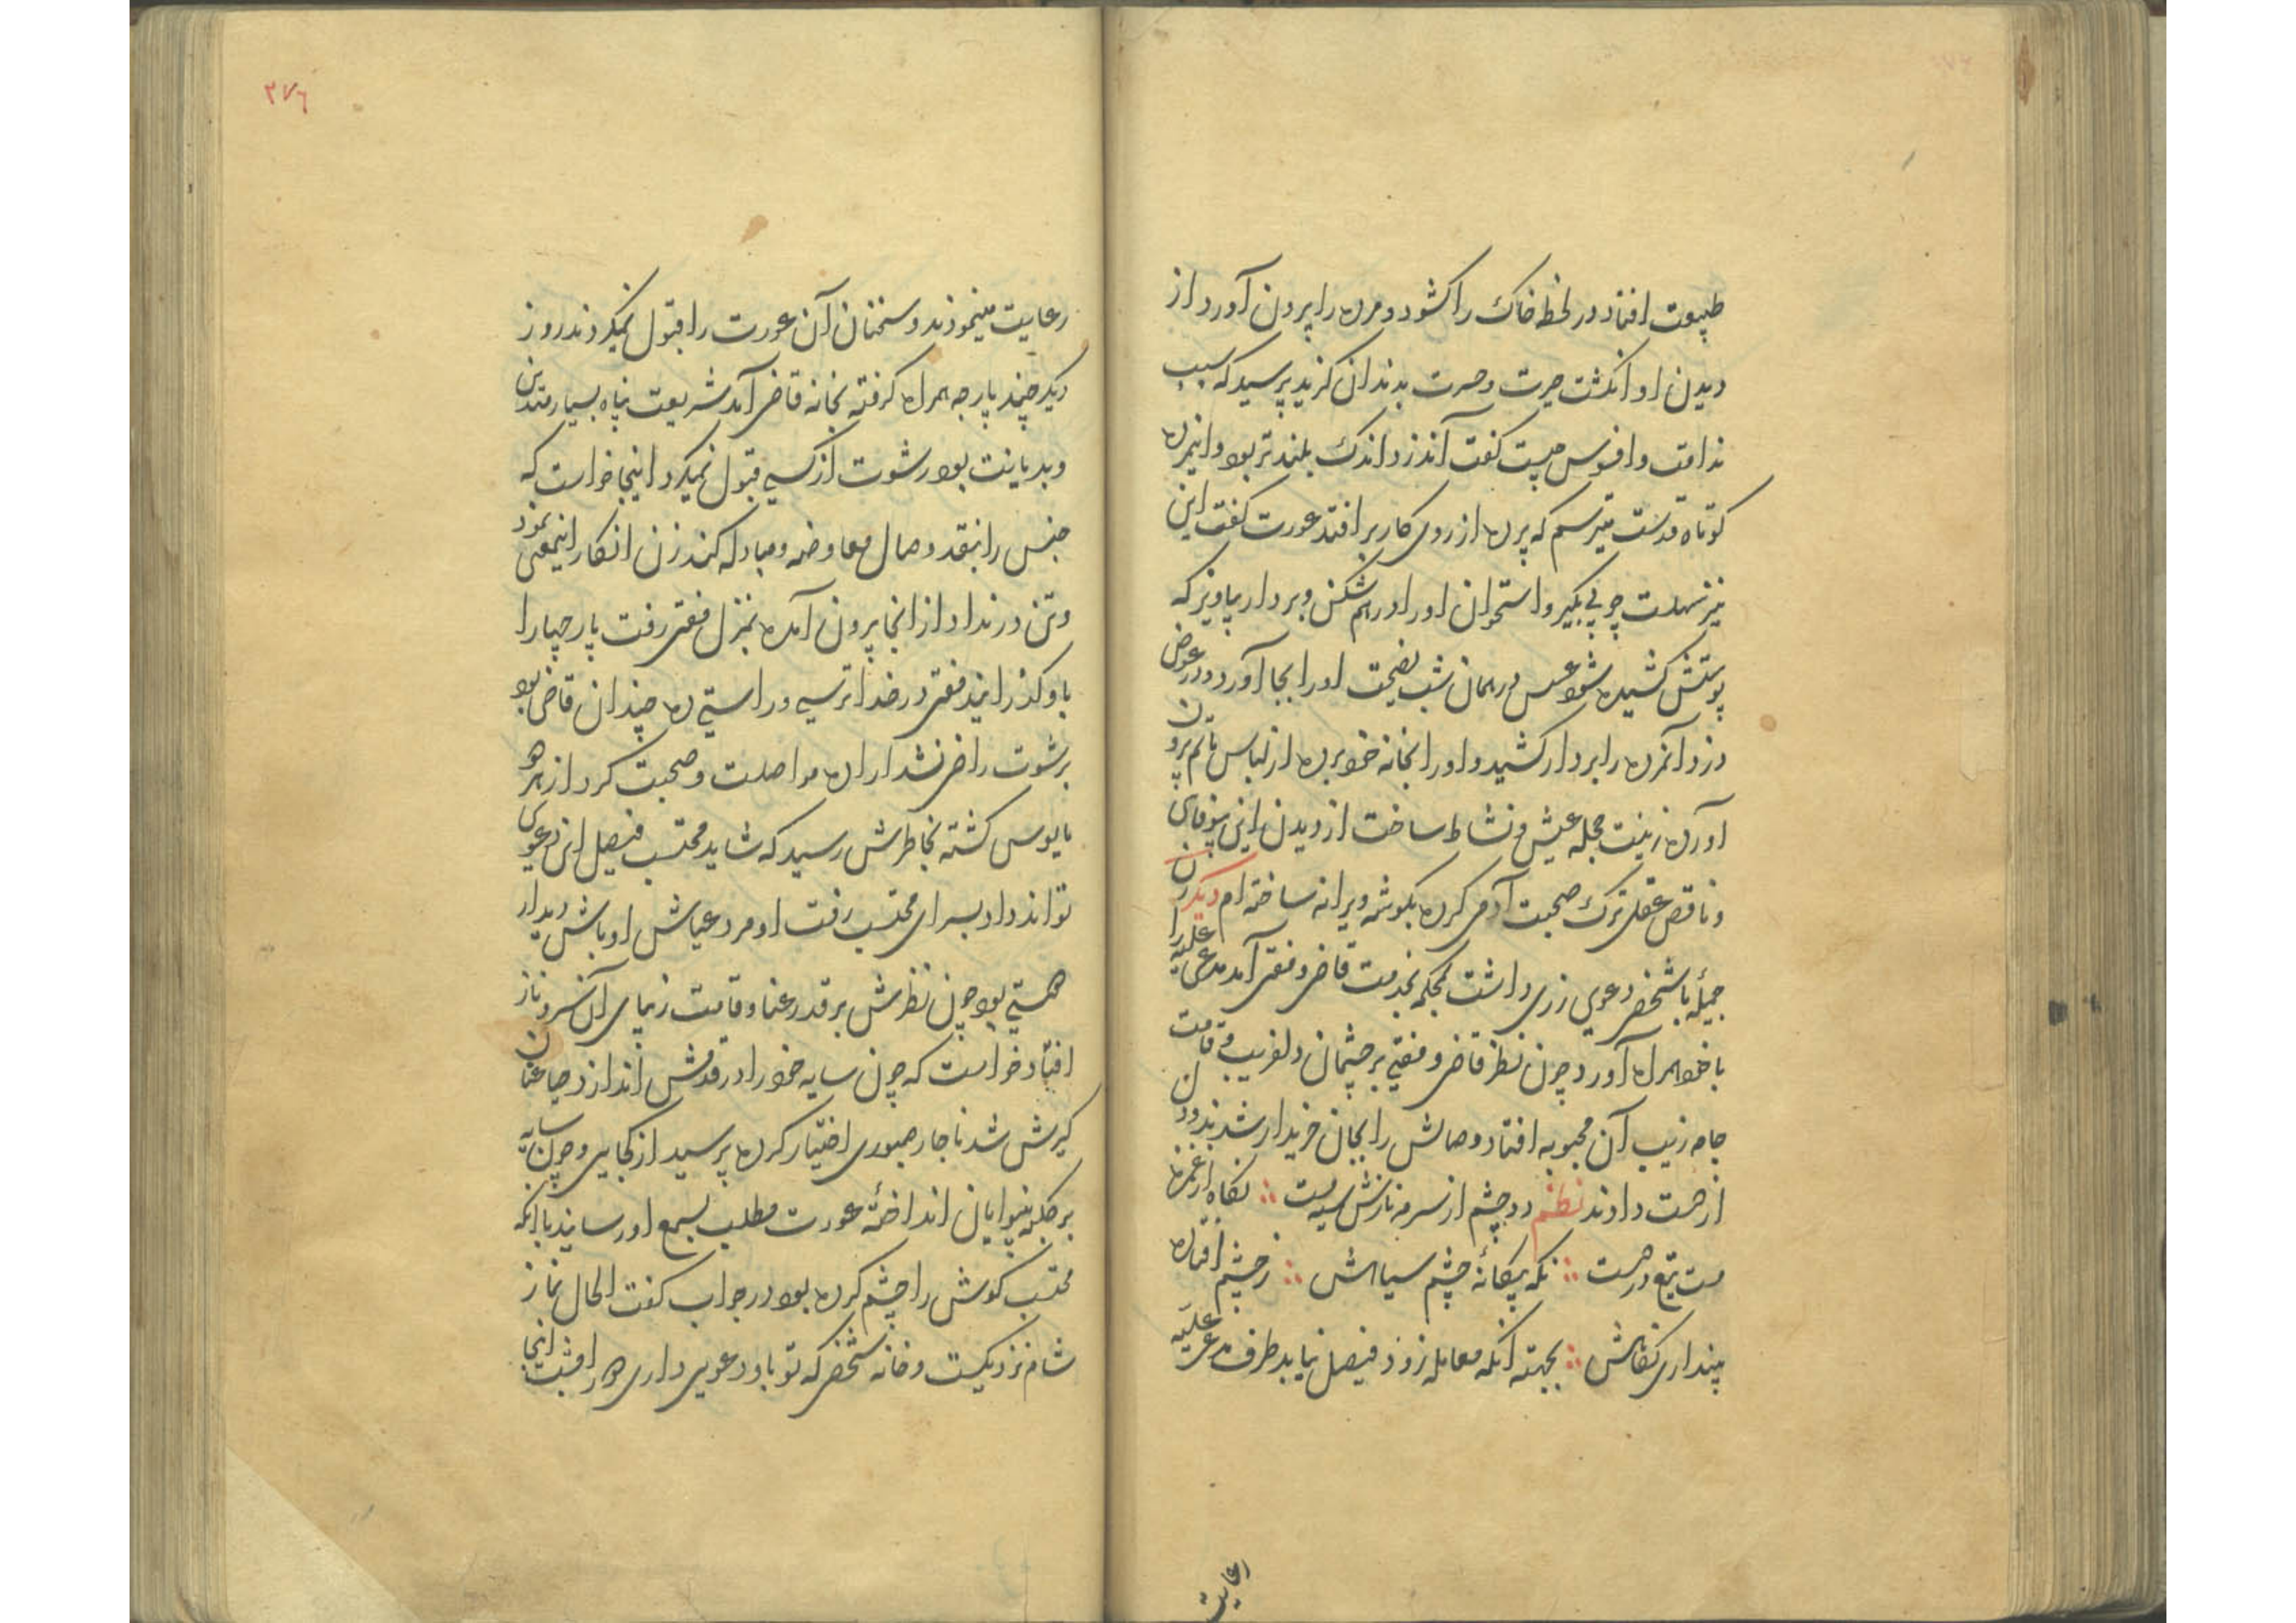 طبیعت افتاد در لحظه خاک را کشود و مرده را برون آورد از
دیدن او انکشت حیرت و حسرت بدندان کزید پرسید که سبب
ندامت و افسوس چیست کفت آندزد اندک بلندتر بود و اینمرده
کوتاه قدست میترسم که پرده از روی کار بر افتد عورت کفت این
نیز سهلست چوبی بکیر و استخوان او را در هم شکن و بردار بیاویز که
پوستش کشیده شود عسس در همان شب نصیحت او را بجا آورد و در عوض
دزد آنمرده را بر دار کشید و او را بخانه خود برده از لباس ماتم برون
آورده زینت حجله عیش و نشاط ساخت از دیدن این بیوفای
و ناقص عقلی ترک صحبت آدمی کرده بکوشه ویرانه ساخته ام دیکر زن
جمیلهٔ با شخصی دعوی زری داشت بمحکمه بخدمت قاضی و مفتی آمد مدعی علیه را
با خود همراه آورد چون نظر قاضی و مفتی بر چشمان دلفریب و قامت
جامه زیب آن محبوبه افتاد وصالش را بجان خریدار شدند و دل
از دست دادند نظم دو چشم از سرمه نازش سیه مست ؞ نکاه از غمزها
مست تیغ در دست ؞ نکه پیکانهٔ چشم سیاهش ؞ ز چشم افتاده
پنداری نکاهش ؞ بجهته انکه معامله زود فیصل نیابد طرف مدعی علیه
رعایت
۲۷۶
رعایت مینمودند و سخنان آن عورت را قبول نمیکردند روز
دیکر چند پارچه همراه کرفته بخانه قاضی آمد شریعت پناه بسیار متدین
و بدیانت بود رشوت از کسی قبول نمیکرد اینجا خواست که
جنس را بنقد وصال معاوضه و مبادله کند زن انکار اینمعنی نمود
و تن در نداد از انجا برون آمده بمنزل مفتی رفت پارچها را
باو کذرانید مفتی در خدا ترسی و راستی ده چندان قاضی بود
برشوت راضی نشد اراده مواصلت و صحبت کرد از هر دو
مایوس کشته بخاطرش رسید که شاید محتسب فیصل این دعوی
تواند داد بسرای محتسب رفت او مرد عیاش اوباش دیدار
هستی بود چون نظرش بر قد رعنا و قامت زیبای آن سرو ناز
افتاد خواست که چون سایه خود را در قدمش اندازد حیا عنان
کیرش شد ناچار صبوری اختیار کرده پرسید از کجایی و چون سایه
بر کلبه بینوایان انداختهٔ عورت مطلب بسمع او رسانید با انکه
محتسب کوشش را چشم کرده بود در جواب کفت الحال نماز
شام نزدیکست و خانه شخصی که تو باو دعوی داری دور امشب اینجا